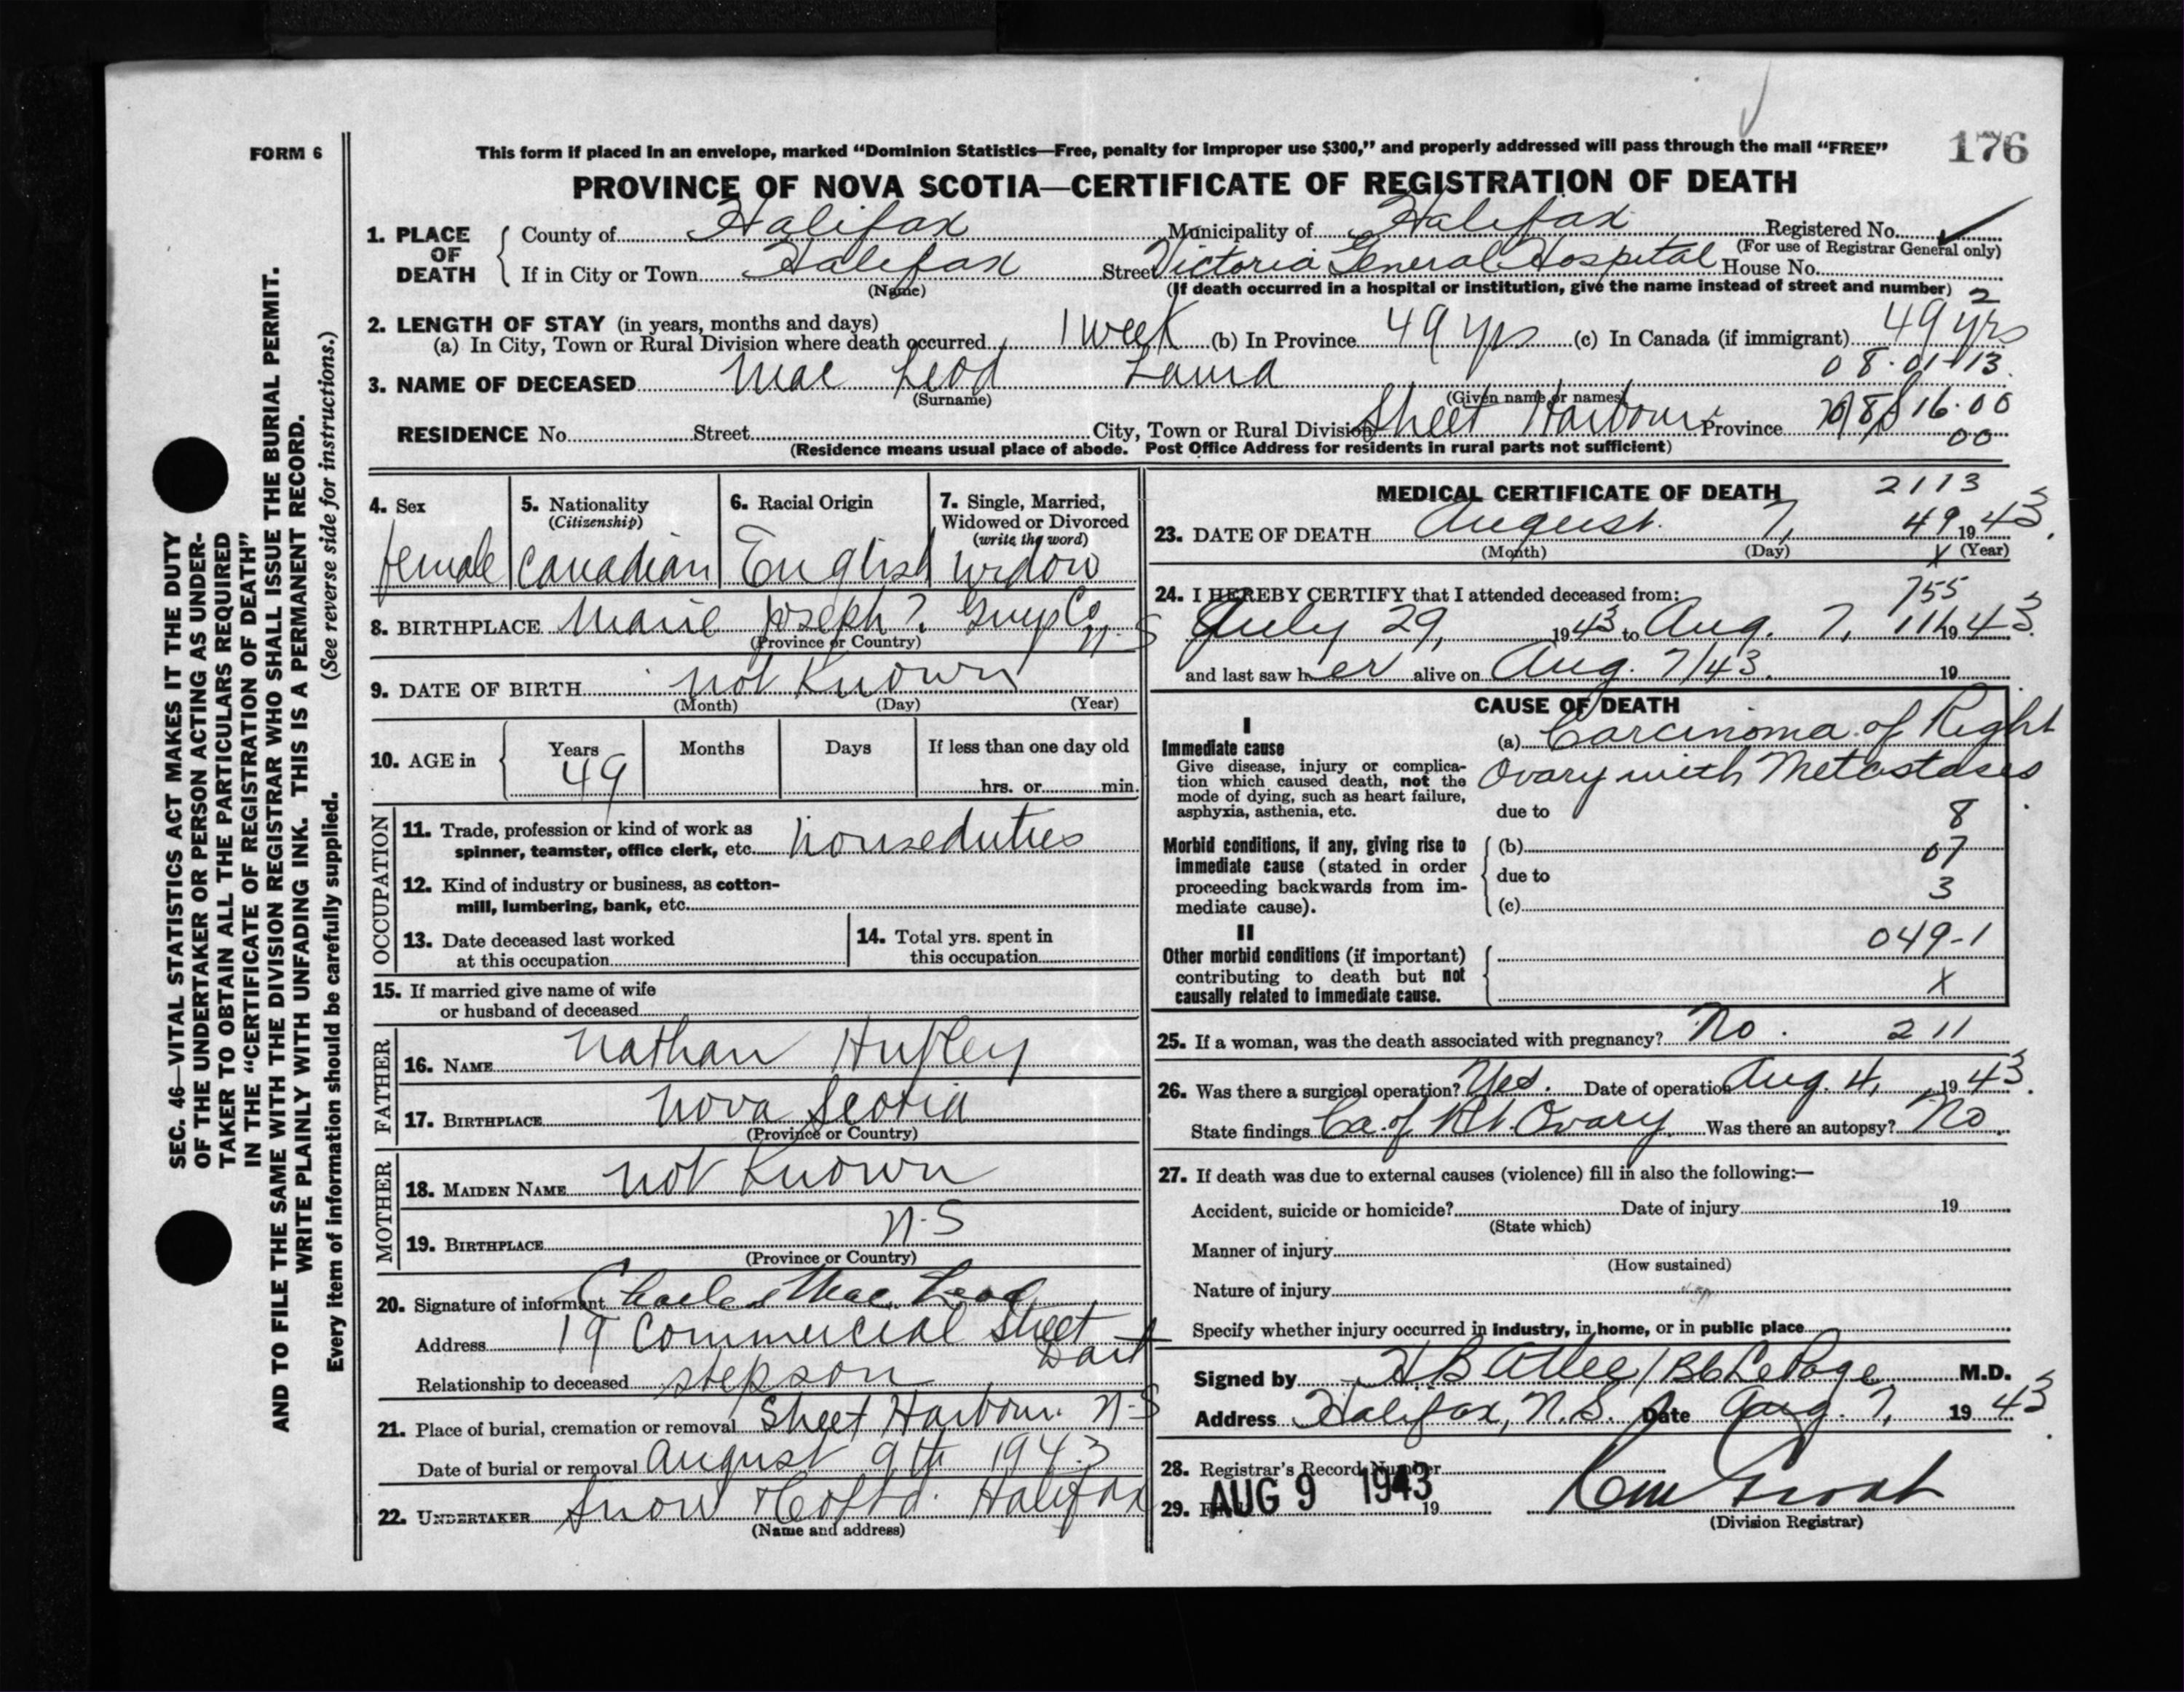 FORM 6
This form if placed in an envelope, marked “Dominion Statistics—Free, penalty for improper use $300,” and properly addressed will pass through the mail “FREE”
176
PROVINCE OF NOVA SCOTIA—CERTIFICATE OF REGISTRATION OF DEATH
1. PLACE OF DEATH
County of Halifax Municipality of Halifax Registered No.
(For use of Registrar General only)
If in City or Town Halifax Street Victoria General Hospital House No.
(Name) (If death occurred in a hospital or institution, give the name instead of street and number) 2
2. LENGTH OF STAY (in years, months and days)
(a) In City, Town or Rural Division where death occurred 1 week (b) In Province 49 yrs (c) In Canada (if immigrant) 49 yrs
08-01-13
3. NAME OF DECEASED Mac Leod Laura
(Surname) (Given name or names)
RESIDENCE No. Street City, Town or Rural Division Sheet Harbour Province 16-00
00
(Residence means usual place of abode. Post Office Address for residents in rural parts not sufficient)
4. Sex
female
5. Nationality
(Citizenship)
Canadian
6. Racial Origin
English
7. Single, Married,
Widowed or Divorced
(write the word)
widow
8. BIRTHPLACE Marie Joseph ?. Guys Co N-S
(Province or Country)
9. DATE OF BIRTH not Known
(Month) (Day) (Year)
10. AGE in
Years Months Days If less than one day old
49 hrs. or min.
OCCUPATION
11. Trade, profession or kind of work as
spinner, teamster, office clerk, etc. houseduties
12. Kind of industry or business, as cotton-
mill, lumbering, bank, etc.
13. Date deceased last worked
at this occupation
14. Total yrs. spent in
this occupation
15. If married give name of wife
or husband of deceased
FATHER
16. NAME Nathan
17. BIRTHPLACE Nova Scotia
(Province or Country)
MOTHER
18. MAIDEN NAME not Known
19. BIRTHPLACE N-S
(Province or Country)
20. Signature of informant Charles Mac Leod
Address 19 Commercial Street
Dart
Relationship to deceased stepson
21. Place of burial, cremation or removal Sheet Harbour N-S
Date of burial or removal August 9th 1943
22. UNDERTAKER Snow & Co Ltd. Halifax
(Name and address)
MEDICAL CERTIFICATE OF DEATH
2113
23. DATE OF DEATH August 7, 49 19 43.
(Month) (Day) X (Year)
24. I HEREBY CERTIFY that I attended deceased from: 755
July 29, 1943 to Aug. 7, 111 19 43.
and last saw her alive on Aug. 7/43. 19
CAUSE OF DEATH
I
Immediate cause
Give disease, injury or complica-
tion which caused death, not the
mode of dying, such as heart failure,
asphyxia, asthenia, etc.
(a) Carcinoma of Right
Ovary with Metastases
due to
8
Morbid conditions, if any, giving rise to
immediate cause (stated in order
proceeding backwards from im-
mediate cause).
(b) 07
due to
3
(c)
II
Other morbid conditions (if important)
contributing to death but not
causally related to immediate cause.
049-1
X
25. If a woman, was the death associated with pregnancy? No. 211
26. Was there a surgical operation? Yes. Date of operation Aug. 4, 19 43.
State findings Ca. of Rt. Ovary Was there an autopsy? No
27. If death was due to external causes (violence) fill in also the following:—
Accident, suicide or homicide? Date of injury 19
(State which)
Manner of injury
(How sustained)
Nature of injury
Specify whether injury occurred in industry, in home, or in public place
Signed by H B Atlee / LePage M.D.
Address Halifax, N.S. Date Aug. 7, 19 43.
28. Registrar's Record Number
29. AUG 9 1943 19
(Division Registrar)
SEC. 46—VITAL STATISTICS ACT MAKES IT THE DUTY
OF THE UNDERTAKER OR PERSON ACTING AS UNDER-
TAKER TO OBTAIN ALL THE PARTICULARS REQUIRED
IN THE “CERTIFICATE OF REGISTRATION OF DEATH”
AND TO FILE THE SAME WITH THE DIVISION REGISTRAR WHO SHALL ISSUE THE BURIAL PERMIT.
WRITE PLAINLY WITH UNFADING INK. THIS IS A PERMANENT RECORD.
Every item of information should be carefully supplied. (See reverse side for instructions.)